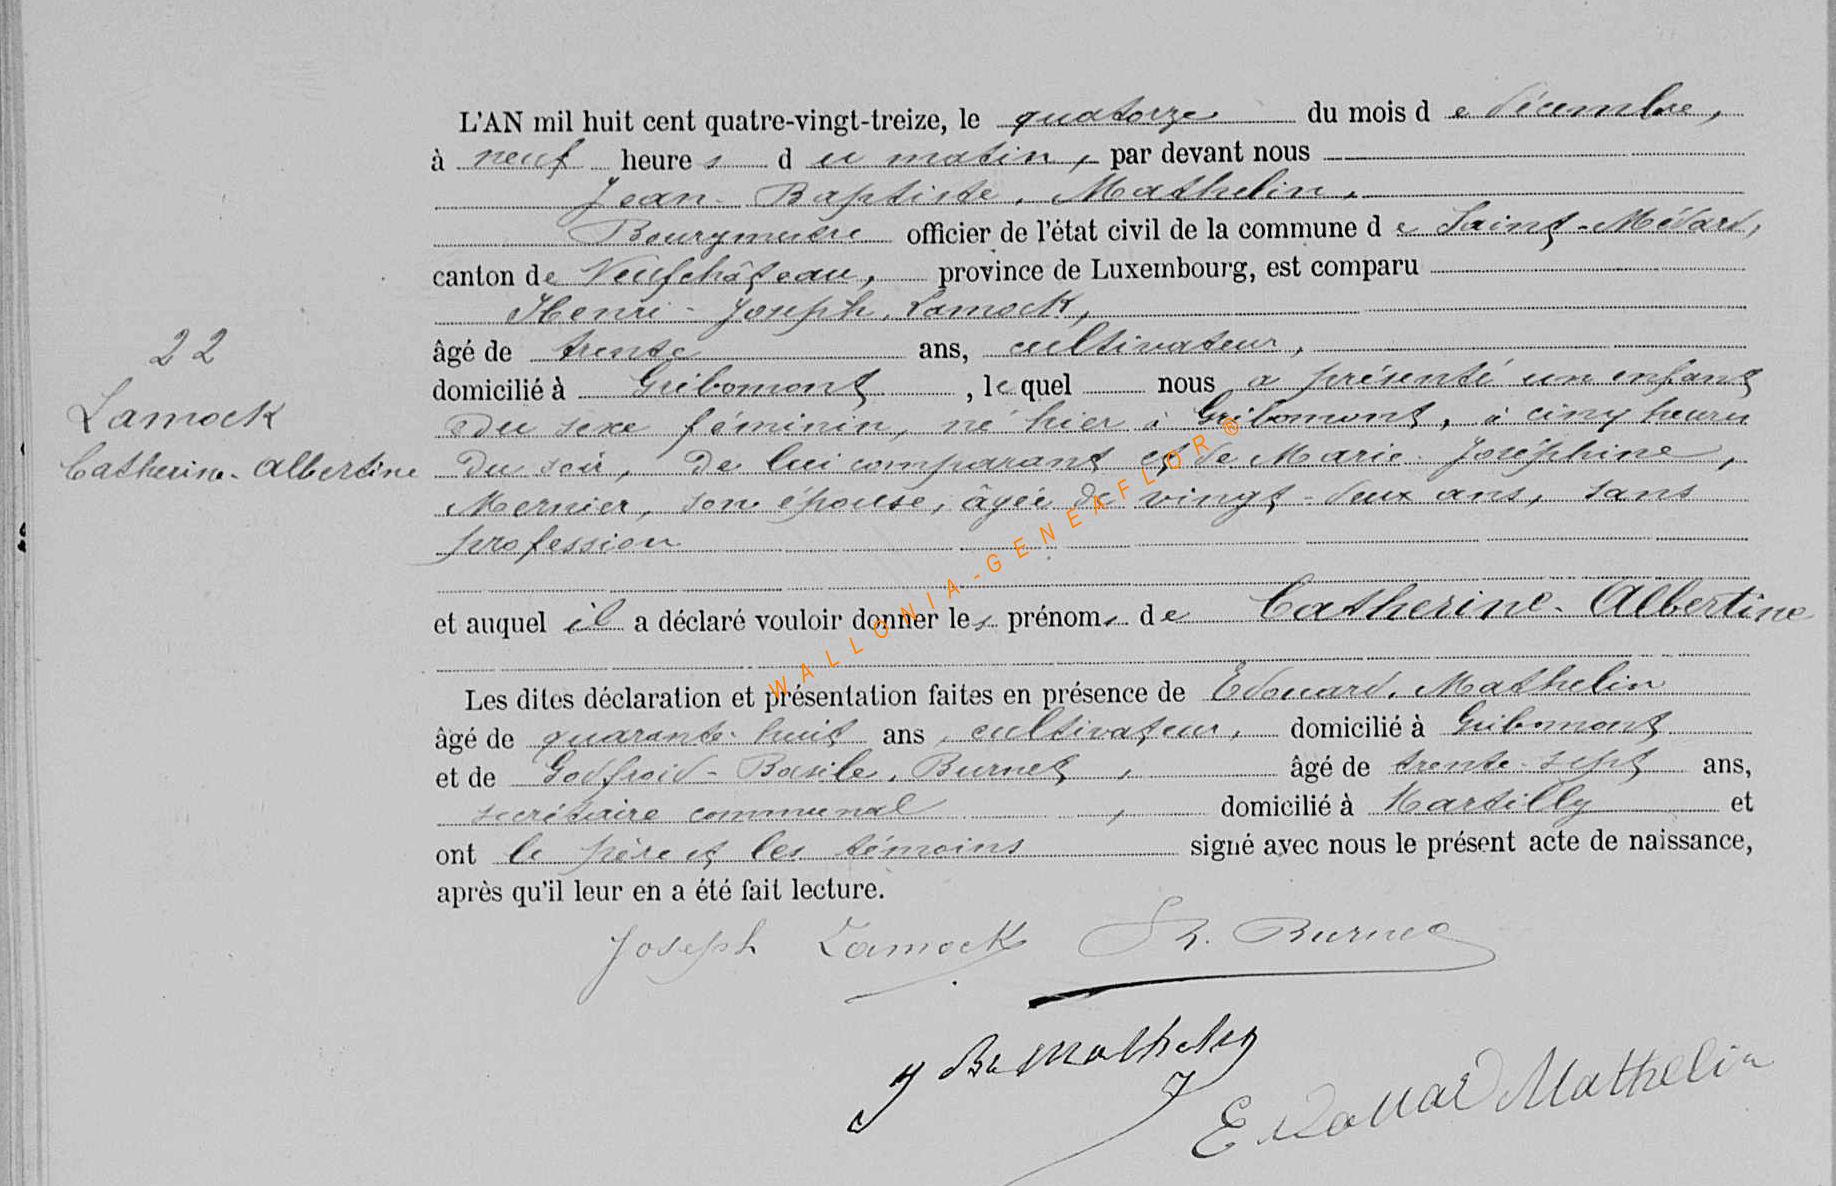 L'AN mil huit cent quatre-vingt-treize, le quatorze du mois de décembre,
à neuf heures du matin, par devant nous
Jean-Baptiste, Mathelin,
Bourgmestre officier de l'état civil de la commune de Saint-Médard,
canton de Neufchâteau, province de Luxembourg, est comparu
Henri-Joseph, Lamock,
22
âgé de trente ans, cultivateur,
domicilié à Gribomont, lequel nous a présenté un enfant
Lamock
du sexe féminin, né hier à Gribomont, à cinq heures
Catherine-Albertine
du soir, de lui comparant et de Marie-Joséphine,
Mernier, son épouse, âgée de vingt-deux ans, sans
profession
et auquel il a déclaré vouloir donner les prénoms de Catherine-Albertine
Les dites déclaration et présentation faites en présence de Edouard, Mathelin
âgé de quarante-huit ans, cultivateur, domicilié à Gribomont
et de Godfroid-Basile, Burnet, âgé de trente-sept ans,
secrétaire communal, domicilié à Martilly et
ont le père et les témoins signé avec nous le présent acte de naissance,
après qu'il leur en a été fait lecture.
Joseph Lamock Burnet
J Bte Mathelin
Edouard Mathelin
WALLONIA-GENEAFLOR®